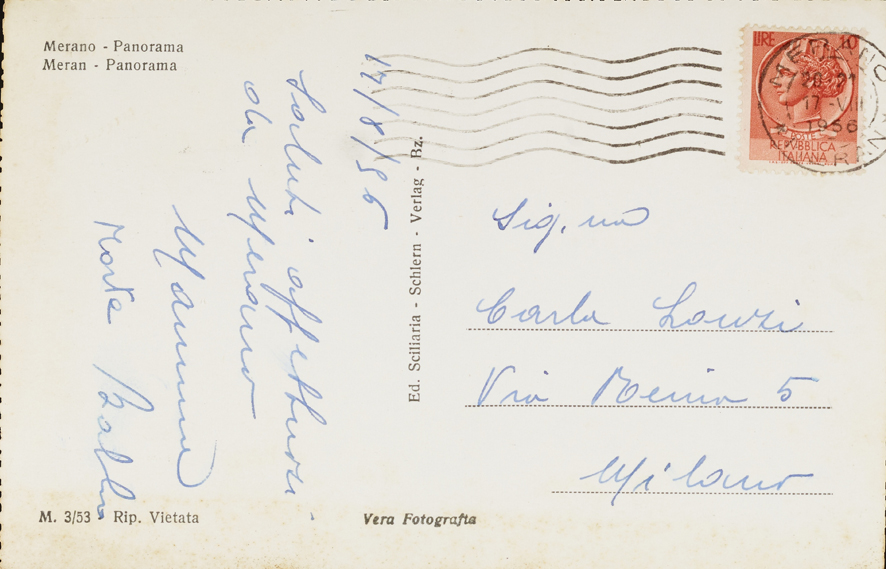 Merano - Panorama
Meran - Panorama
17/8/56
Saluti affettuosi
da Merano
Mamma
Ed. Sciliaria - Schlern - Verlag - Bz.
LIRE 10
POSTE
REPVBBLICA
ITALIANA
MERANO
17 - VIII
1956
MERAN
Sig.na
Carla
Via 5
Milano
M. 3/53 - Rip. Vietata
Vera Fotografia